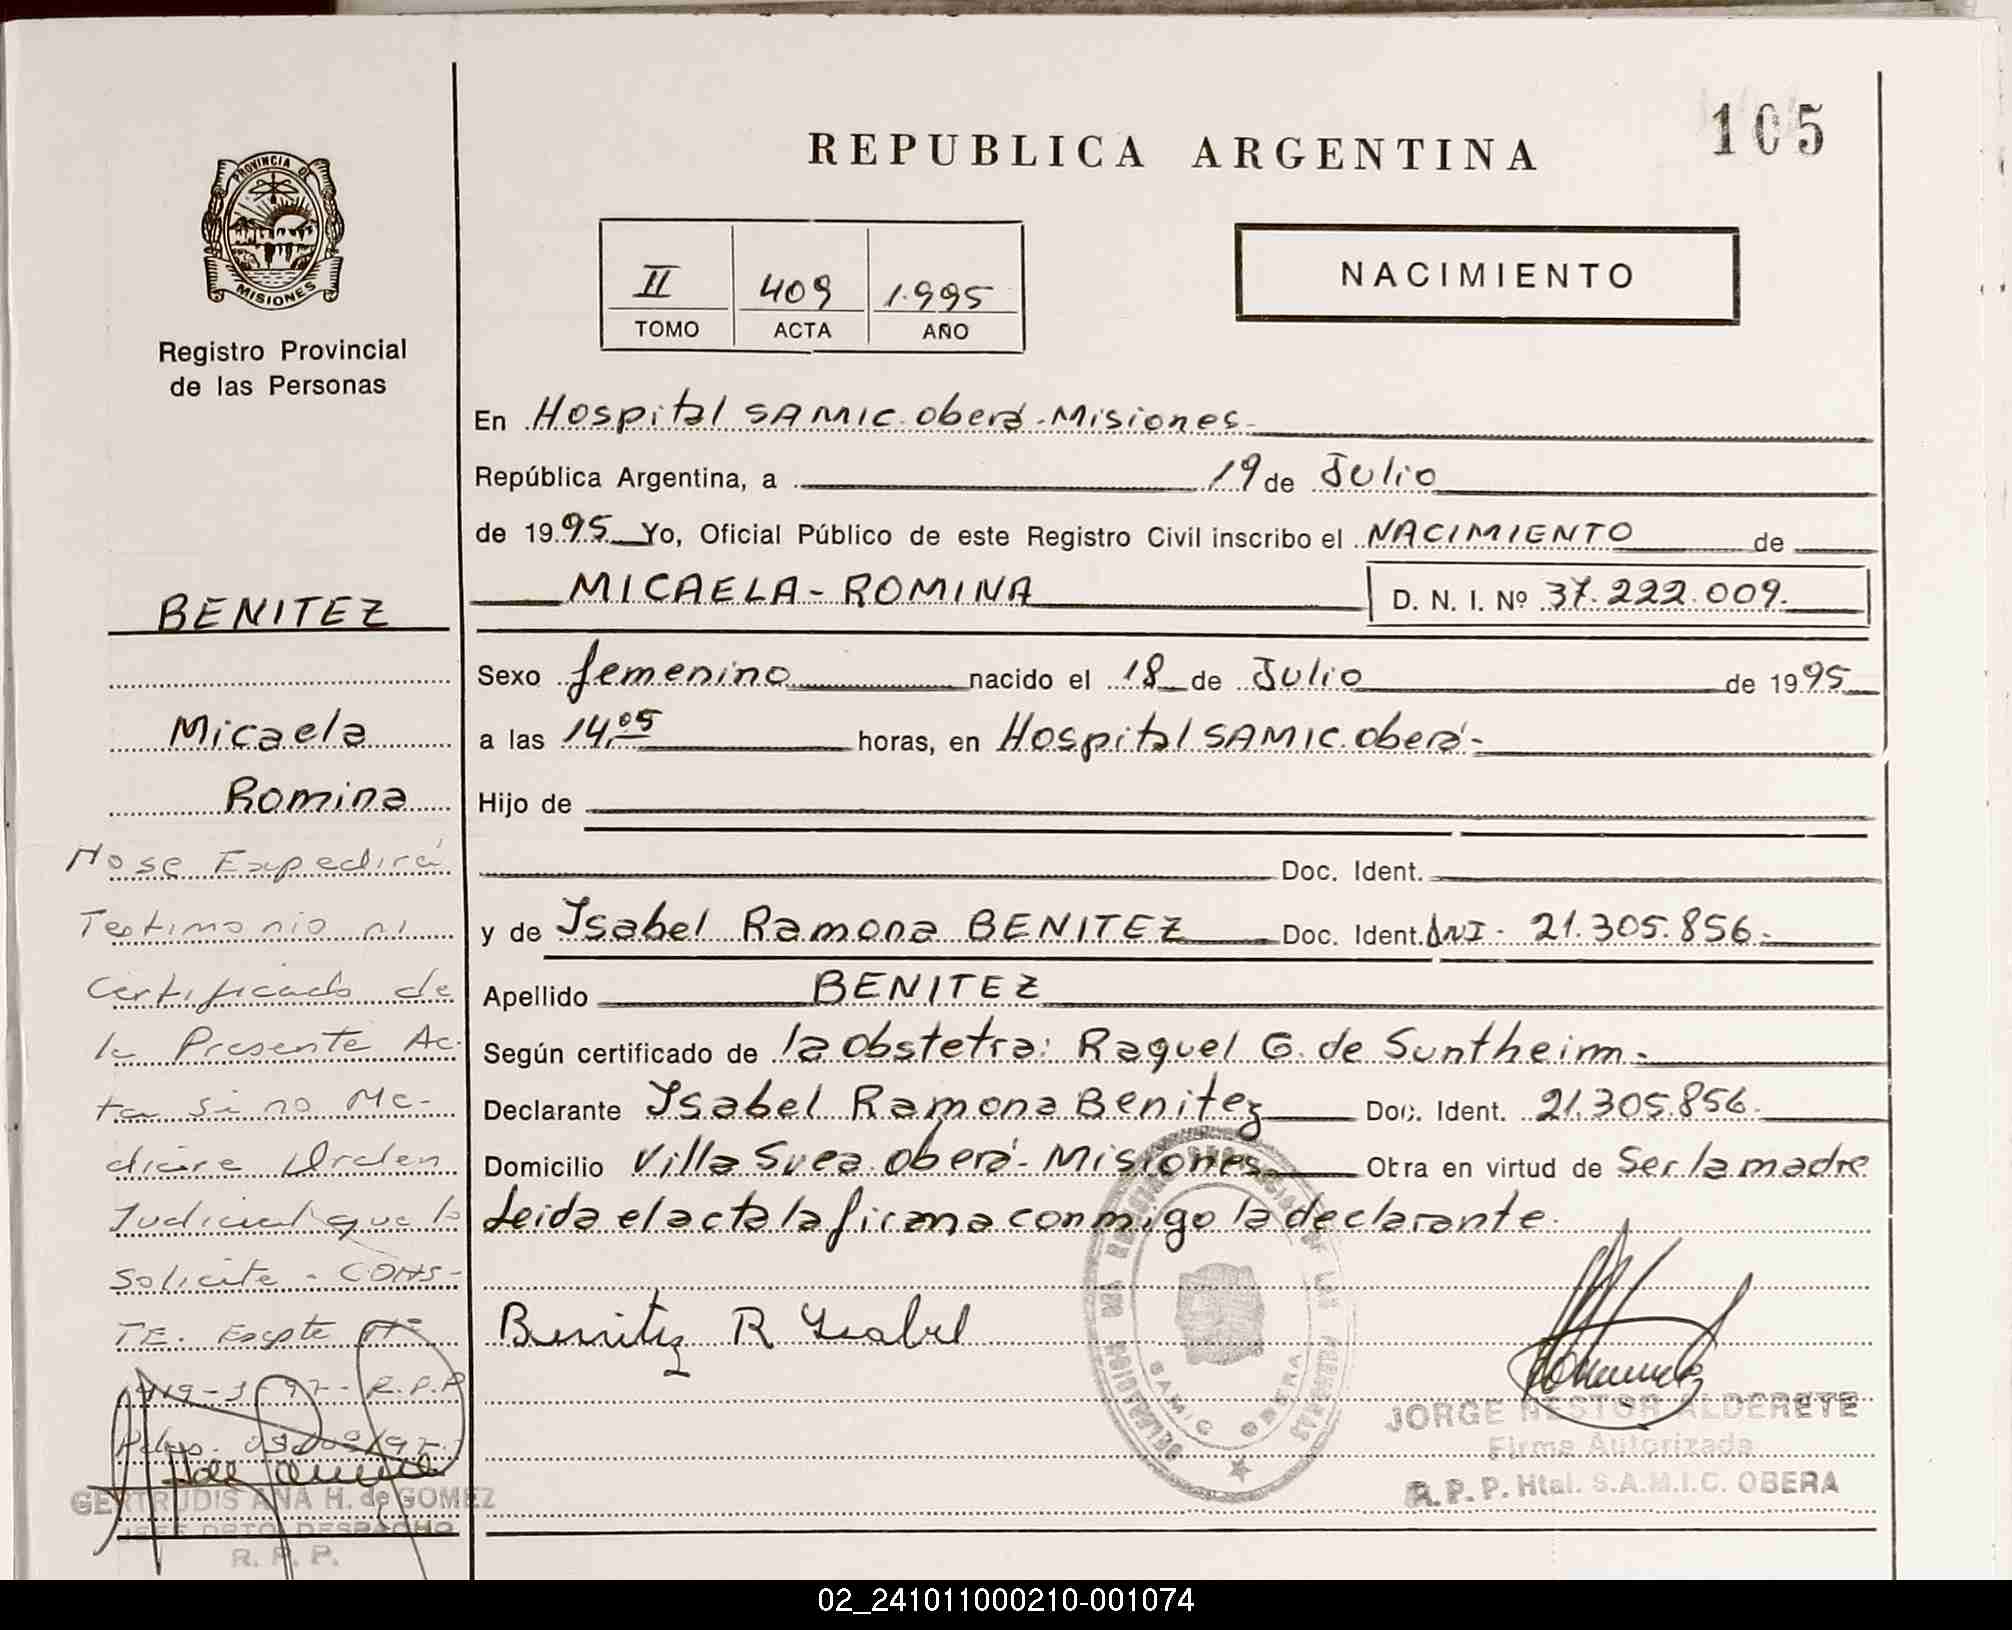 105
REPUBLICA ARGENTINA
PROVINCIA DE
MISIONES
Registro Provincial
de las Personas
II 409 1.995
TOMO ACTA AÑO
NACIMIENTO
En Hospital SAMIC. Oberá-Misiones-
República Argentina, a 19 de Julio
de 1995 Yo, Oficial Público de este Registro Civil inscribo el NACIMIENTO de
MICAELA-ROMINA D. N. I. Nº 37.222.009.
Sexo femenino nacido el 18 de Julio de 1995
a las 14,05 horas, en Hospital SAMIC. Oberá-
Hijo de
Doc. Ident.
y de Isabel Ramona BENITEZ Doc. Ident. DNI- 21.305.856-
Apellido BENITEZ
Según certificado de la obstetra: Raquel G. de Suntheim-
Declarante Isabel Ramona Benitez Doc. Ident. 21.305.856.
Domicilio Villa Svea. Oberá- Misiones Obra en virtud de Ser la madre
Leida el acta la firma conmigo la declarante.
Benitez R Ysabel
SAMIC OBERA
JORGE NESTOR ALDERETE
Firma Autorizada
R.P.P. Htal. S.A.M.I.C. OBERA
BENITEZ
Micaela
Romina
No se Expedirá
Testimonio ni
Certificado de
la Presente Ac-
ta si no Me-
diare Orden
Judicial que lo
Solicite - CONS-
TE. Expte Nº
419-3 97- R.P.P
GERTRUDIS ANA H. de GOMEZ
JEFE DPTO DESPACHO
R. P. P.
02_241011000210-001074